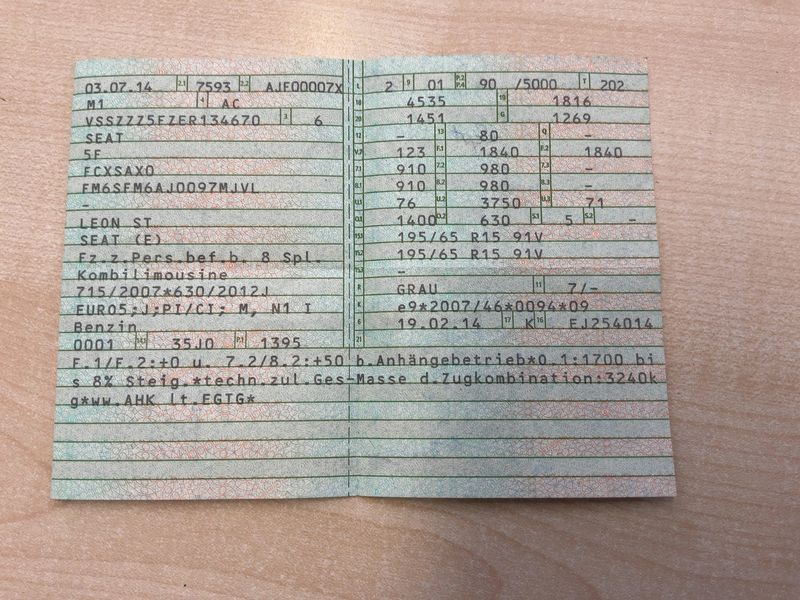 03.07.14 2.1 7593 2.2 AJF00007X
M1 4 AC
VSSZZZ5FZER134670 3 6
SEAT
5F
FCXSAX0
FM6SFM6AJ0097MJVL
-
LEON ST
SEAT (E)
Fz.z.Pers.bef.b. 8 Spl.
Kombilimousine
715/2007*630/2012J
EURO5;J;PI/CI; M, N1 I
Benzin
0001 14.1 35J0 P.1 1395
L 2 9 01 P.2 P.4 90 /5000 T 202
18 4535 19 1816
20 1451 G 1269
12 - 13 80 Q -
V.7 123 F.1 1840 F.2 1840
7.1 910 7.2 980 7.3 -
8.1 910 8.2 980 8.3 -
U.1 76 U.2 3750 U.3 71
O.1 1400 O.2 630 S.1 5 S.2 -
15.1 195/65 R15 91V
15.2 195/65 R15 91V
15.3 -
R GRAU 11 7/-
K e9*2007/46*0094*09
6 19.02.14 17 K 16 EJ254014
21
F.1/F.2:+0 u. 7.2/8.2:+50 b.Anhängebetrieb*O.1:1700 bi
s 8% Steig.*techn.zul.Ges-Masse d.Zugkombination:3240k
g*ww.AHK lt.EGTG*